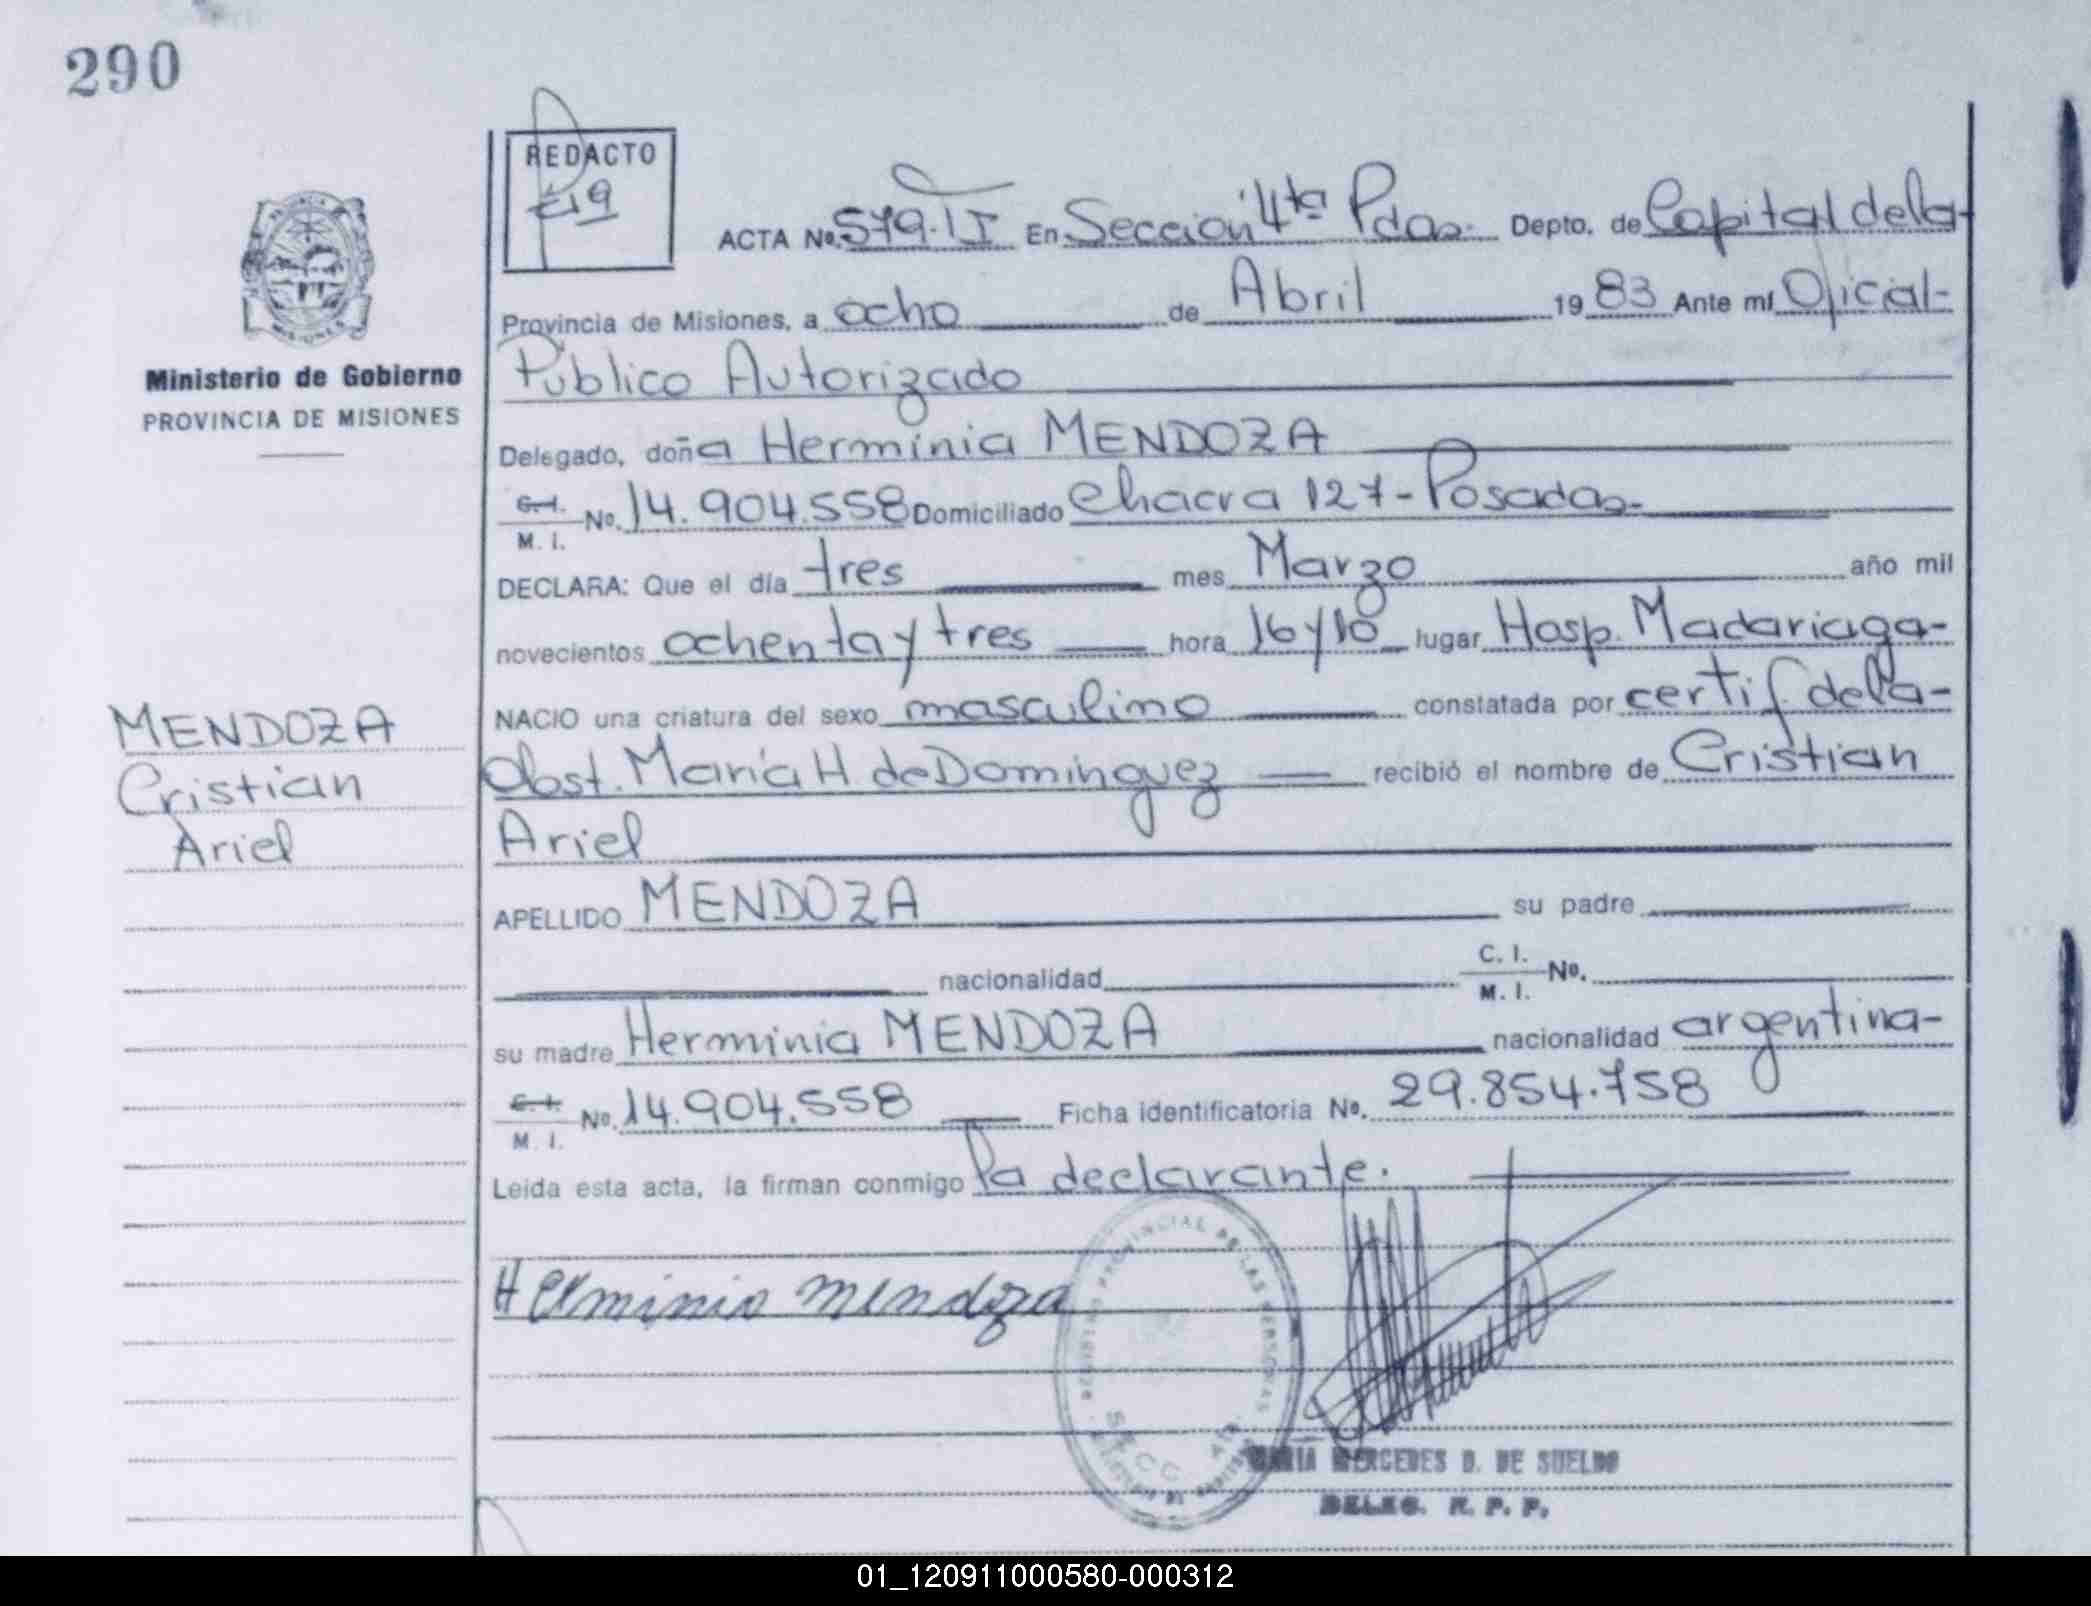 290
REDACTO
ACTA No. 579. TI En Sección 4ta Pdas. Depto. de Capital de la-
Provincia de Misiones, a ocho de Abril 1983 Ante mí Oficial-
Ministerio de Gobierno
PROVINCIA DE MISIONES
Público Autorizado
Delegado, doña Herminia MENDOZA
C.I. M. I. No. 14.904.558 Domiciliado Chacra 127 - Posadas-
DECLARA: Que el día tres mes Marzo año mil
novecientos ochenta y tres hora 16 y 10 lugar Hosp. Madariaga-
NACIO una criatura del sexo masculino constatada por certif de la-
Obst. María H. de Dominguez recibió el nombre de Cristian
Ariel
MENDOZA
Cristian
Ariel
APELLIDO MENDOZA su padre
nacionalidad C. I. M. I. No.
su madre Herminia MENDOZA nacionalidad argentina-
C. I. M. I. No. 14.904.558 Ficha identificatoria No. 29.854.758
Leida esta acta, la firman conmigo la declarante.
Herminia mendoza
REGISTRO PROVINCIAL DE LAS PERSONAS
SECC. 4ta
MARIA MERCEDES D. DE SUELDO
DELEG. R. P. P.
01_120911000580-000312